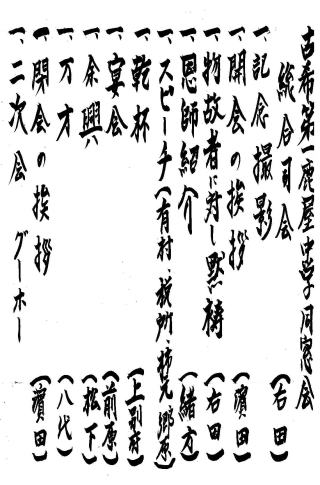 古希第一鹿屋中学同窓会
総合司会 (右田)
一、記念撮影
一、開会の挨拶 (濵田)
一、物故者に対し黙祷 (右田)
一、恩師紹介 (緒方)
一、スピーチ(有村、税所、柿元、郷原)
一、乾杯 (上別府)
一、宴会 (前原)
一、余興 (松下)
一、万才 (八代)
一、閉会の挨拶 (濵田)
一、二次会 グーホー